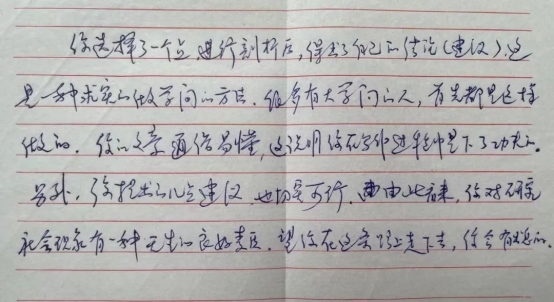 你选择了一个点,进行剖析后,得出了自己的结论(建议).这
是一种求实的做学问的方法.很多有大学问的人,首先都是这样
做的.你的文章通俗易懂,这说明你在写作过程中是下了功夫的.
另外,你提出的几点建议也切实可行.由此看来,你对研究
社会现象有一种天生的良好素质.望你在这条路上走下去,你会有出息的.